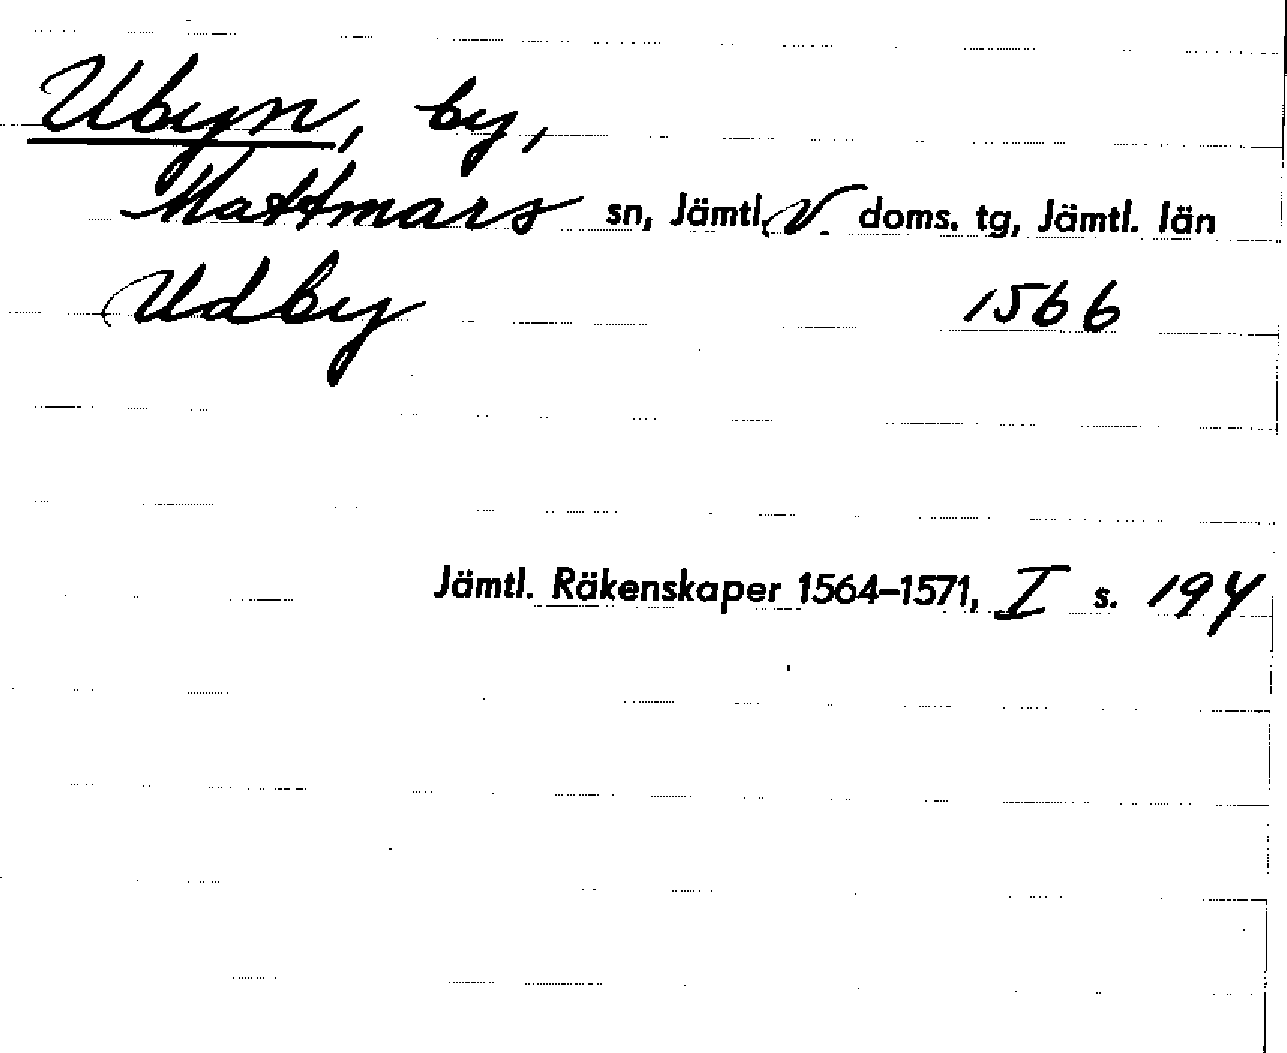 Ubyn, by,
Mattmars sn, Jämtl. V. doms. tg, Jämtl. län
Udby 1566
Jämtl. Räkenskaper 1564–1571, I s. 194